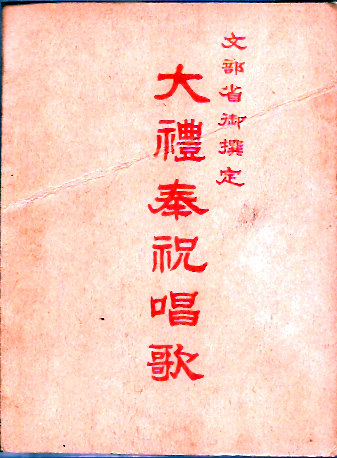 文部省御撰定
大禮奉祝唱歌